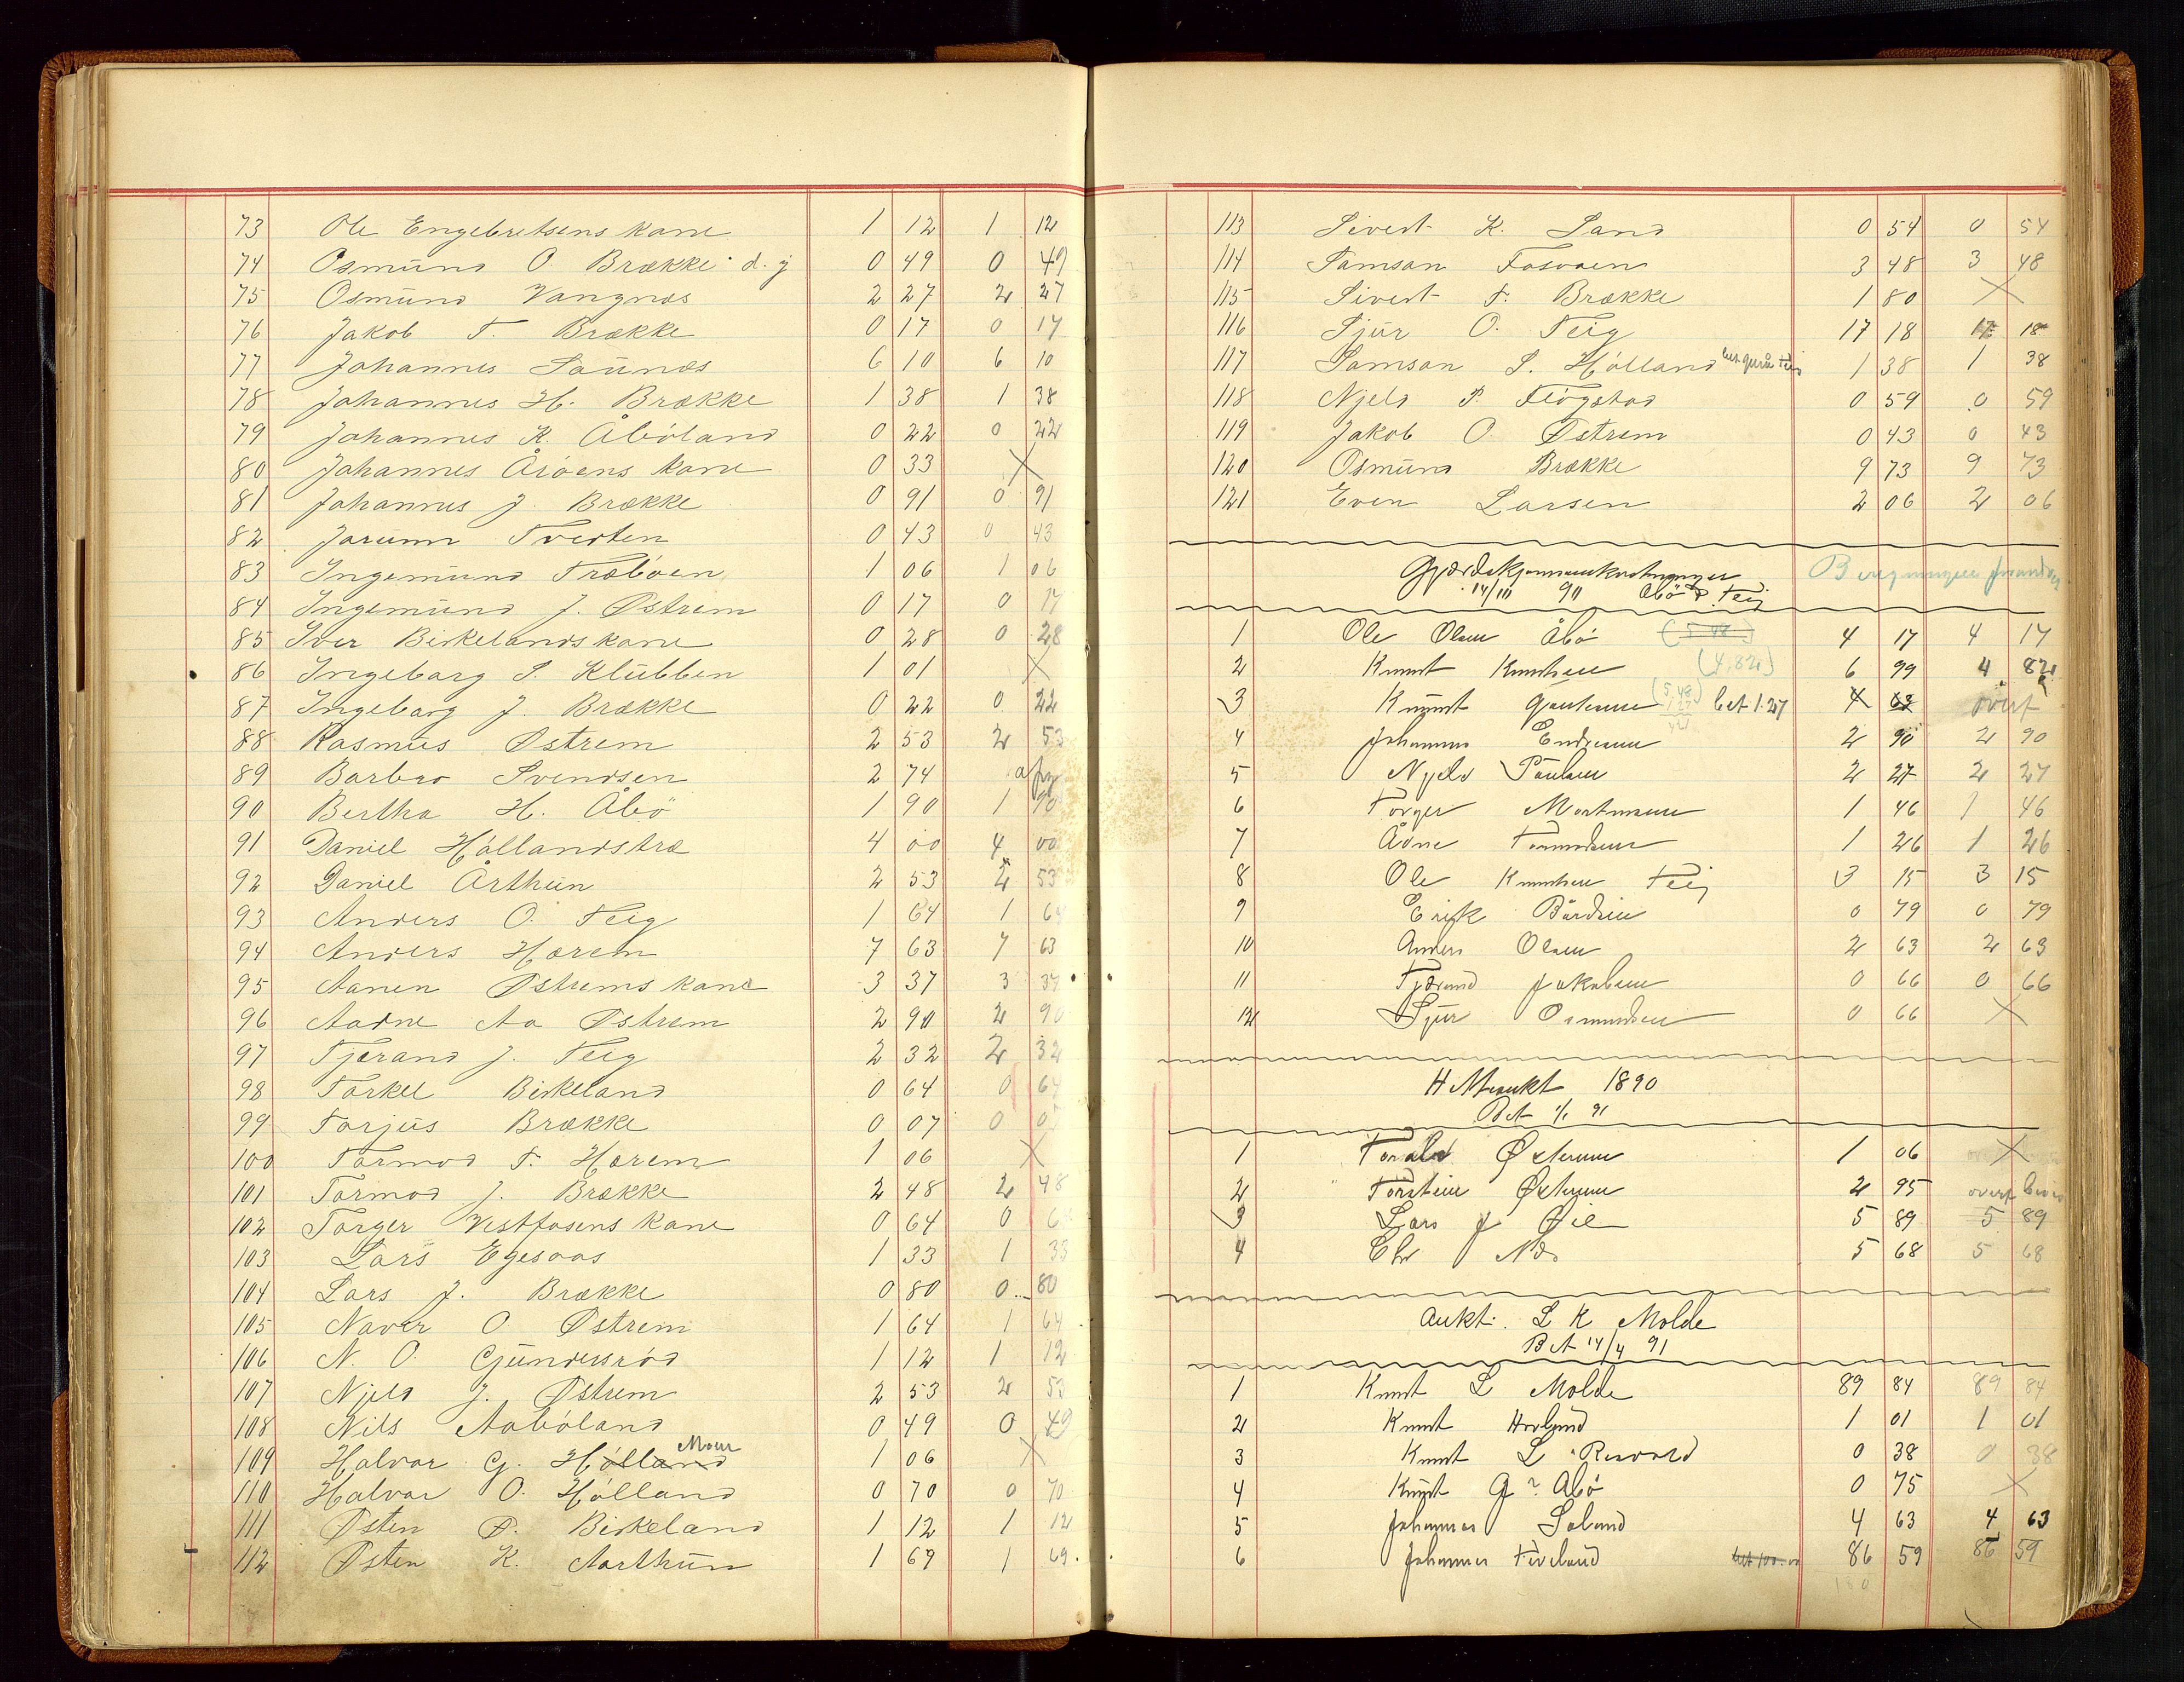 73 Ole Engebretsens kone 1 12 1 12
74 Osmund O. Brække d. y 0 49 0 49
75 Osmund Vangnæs 2 27 2 27
76 Jakob T. Brække 0 17 0 17
77 Johannes Saunæs 6 10 6 10
78 Johannes H. Brække 1 38 1 38
79 Johannes K. Åbøland 0 22 0 22
80 Johannes Årøens kone 0 33 X
81 Johannes J. Brække 0 91 0 91
82 Jorunn Tvedten 0 43 0 43
83 Ingemund Træboen 1 06 1 06
84 Ingemund J. Østrem 0 17 0 17
85 Iver Birkelands kone 0 28 0 28
86 Ingeborg S. Klubben 1 01 X
87 Ingeborg J. Brække 0 22 0 22
88 Rasmus Østrem 2 53 2 53
89 Barbro Svendsen 2 74
90 Bertha H. Åbø 1 90 1 90
91 Daniel Høllandstræ 4 00 4 00
92 Daniel Årthun 2 53 2 53
93 Anders O. Teig 1 64 1 64
94 Anders Hærem 7 63 7 63
95 Aanen Østrems kone 3 37 3 37
96 Aadne Aa Østrem 2 90 2 90
97 Tjærand J. Teig 2 32 2 32
98 Torkel Birkeland 0 64 0 64
99 Torjus Brække 0 07 0 07
100 Tormod T. Hærem 1 06 X
101 Tormod J. Brække 2 48 2 48
102 Torger Vestfosens kone 0 64 0 64
103 Lars Egesaas 1 33 1 33
104 Lars J. Brække 0 80 0 80
105 Naver O. Østrem 1 64 1 64
106 N. O. Gjundersrød 1 12 1 12
107 Njeld J. Østrem 2 53 2 53
108 Nils Aabøland 0 49 0 49
109 Halvor G. Hølland Moen 1 06 X
110 Halvor O. Hølland 0 70 0 70
111 Østen P. Birkeland 1 12 1 12
112 Østen K. Aarthun 1 69 1 69
113 Sivert K. Sand 0 54 0 54
114 Samson Fosvoen 3 48 3 48
115 Sivert T. Brække 1 80 X
116 Sjur O. Teig 17 18 17 18
117 Samson S. Hølland bet 1 38 1 38
118 Njeld P. Fløgstad 0 59 0 59
119 Jakob O. Østrem 0 43 0 43
120 Osmund Brække 9 73 9 73
121 Even Larsen 2 06 2 06
14/10 90 Åbø & Teig
1 Ole Olsen Åbø 4 17 4 17
2 Knut Knutsen (4,82) 6 99 4 82
3 Knut (5,48) bet 1.27 4 63 overf
4 Johannes Endresen 2 90 2 90
5 Njeld Paulsen 2 27 2 27
6 Torger Mortensen 1 46 1 46
7 Ådne Tormodsen 1 26 1 26
8 Ole Knutsen Teig 3 15 3 15
9 Erik Bårdsen 0 79 0 79
10 Anders Olsen 2 63 2 63
11 Tjærand Jakobsen 0 66 0 66
12 Sjur Osmundsen 0 66 X
1890
Bet 1/1 91
1 Torald Østrem 1 06 X
2 Torstein Østrem 2 95 overf
3 Lars J Øie 5 89 5 89
4 Chr Næs 5 68 5 68
Aukt. L K Molde
Bet 14/4 91
1 Knut L Molde 89 84 89 84
2 Knut Hovland 1 01 1 01
3 Knut L Risvold 0 38 0 38
4 Knut G? Åbø 0 75 X
5 Johannes Soland 4 63 4 63
6 Johannes Tveland bet 100.00 86 59 86 59